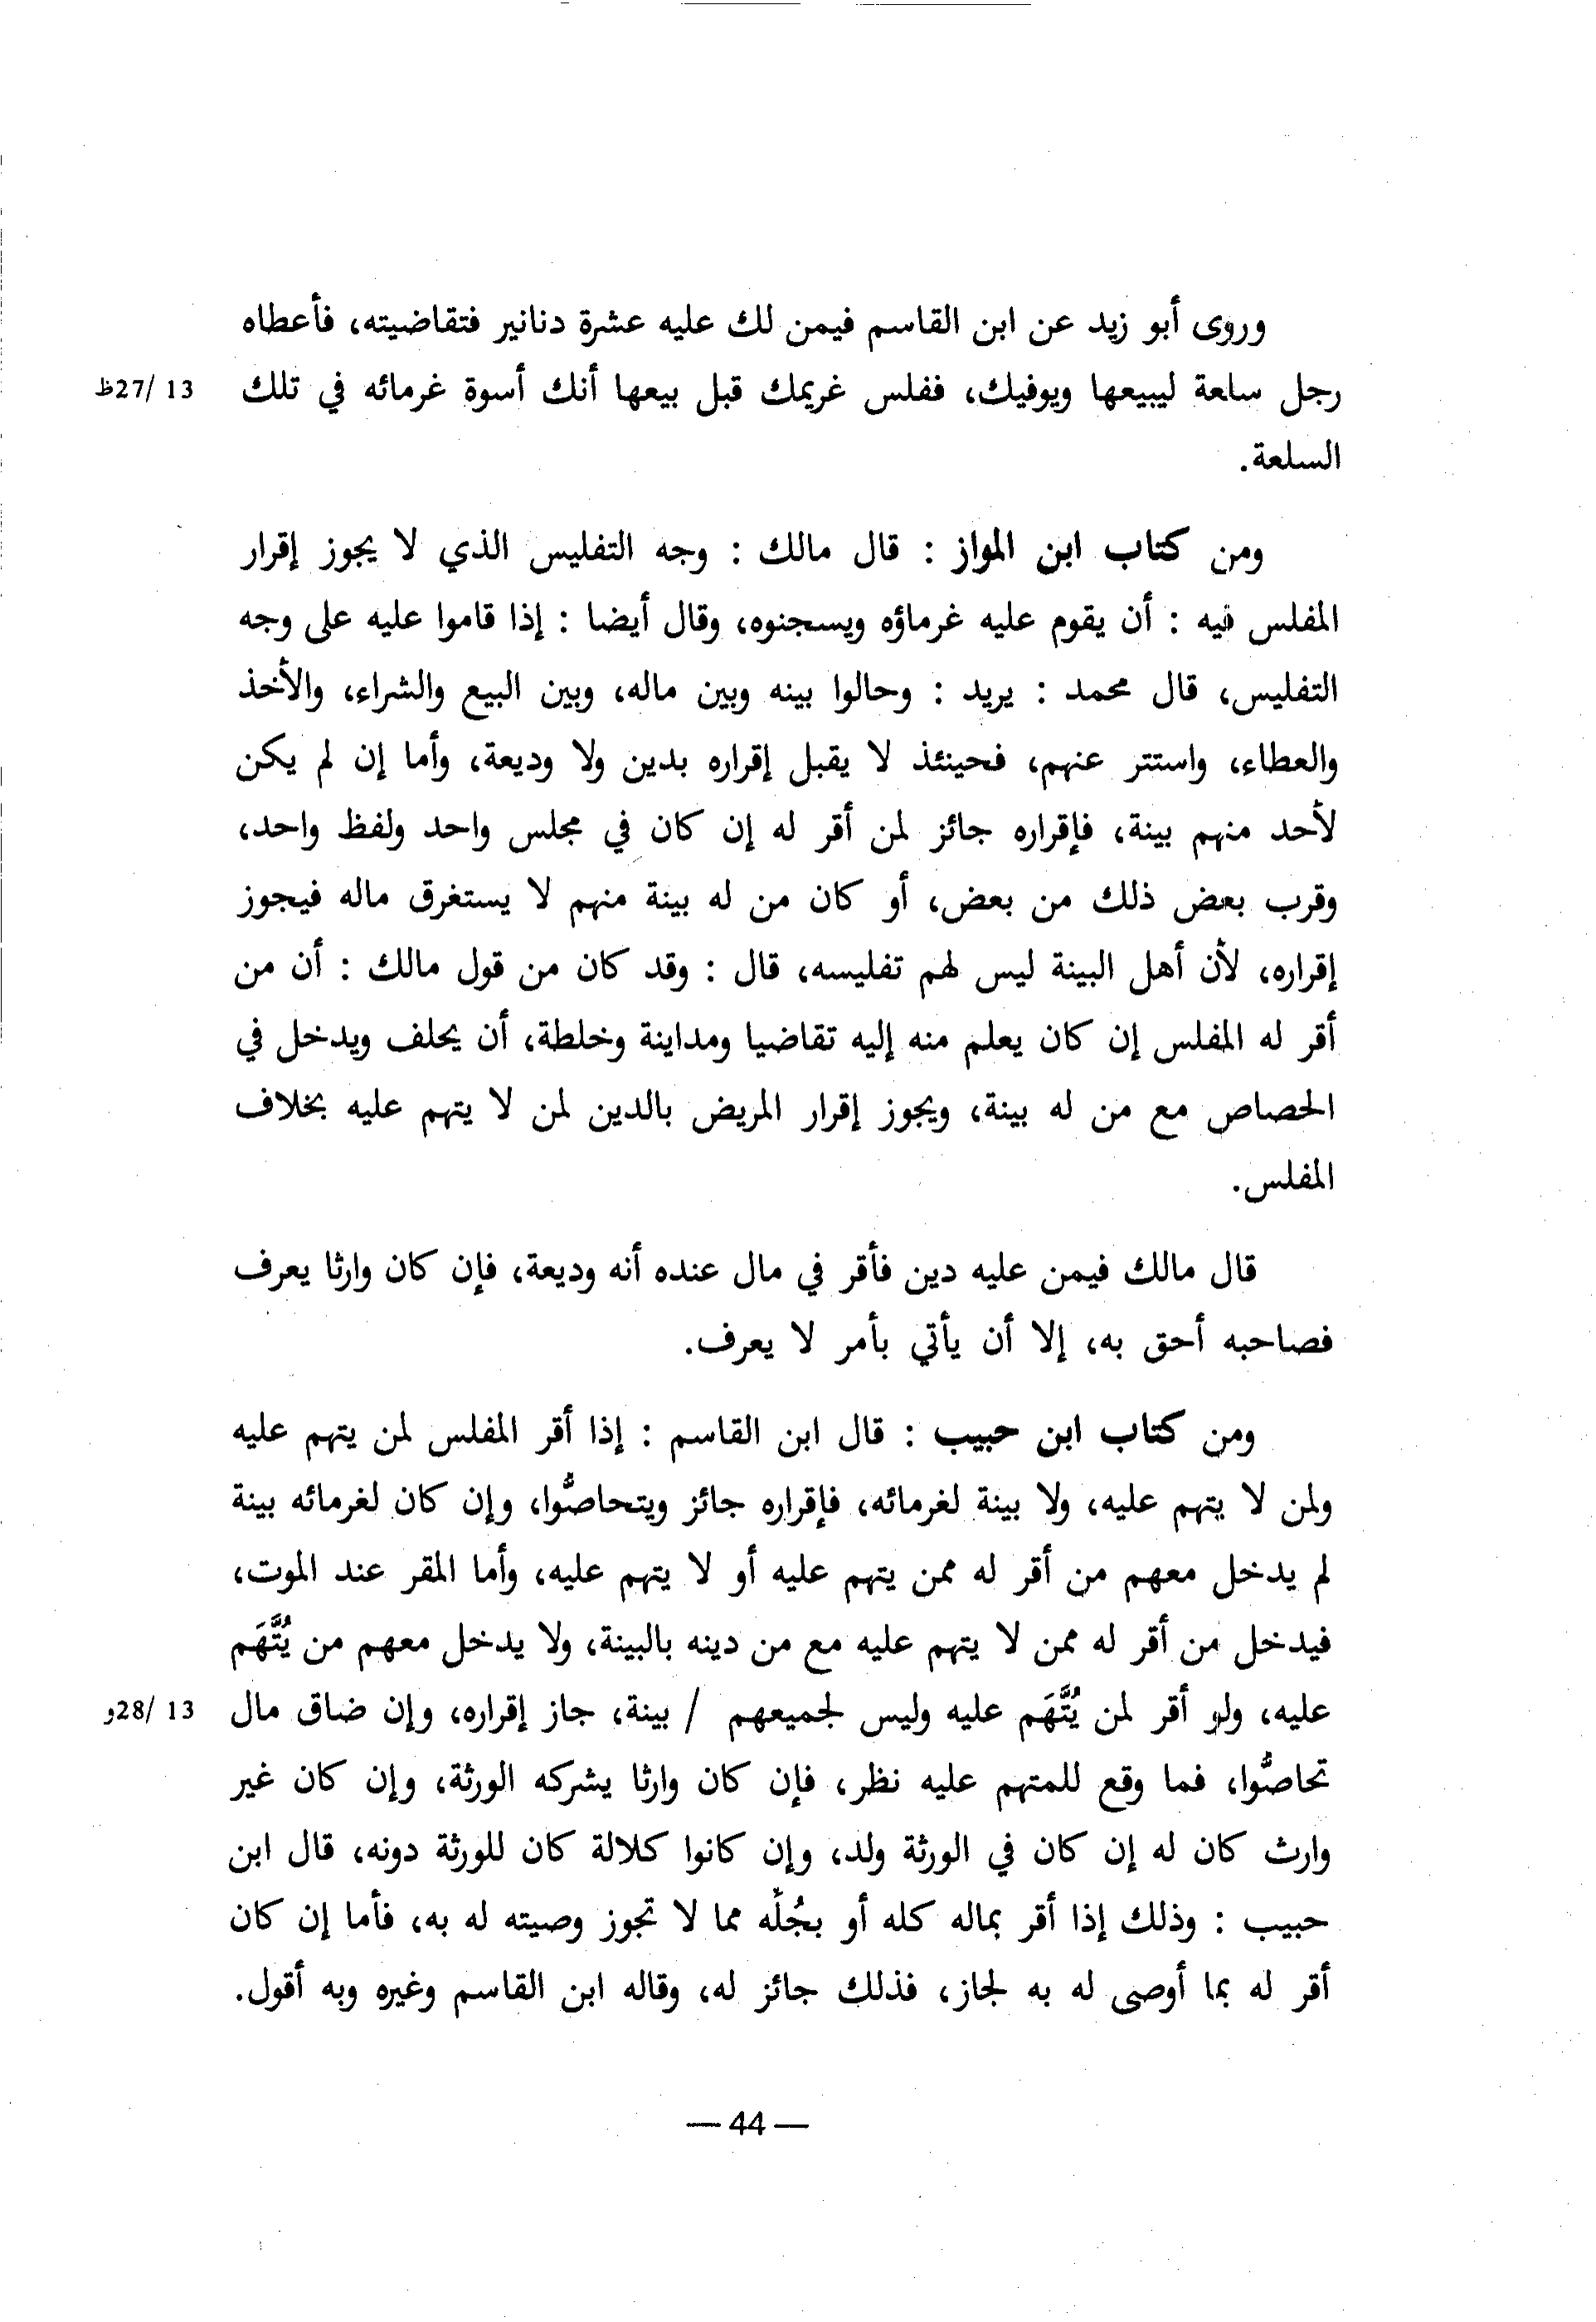 وروى أبو زيد عن ابن القاسم فيمن لك عليه عشرة دنانير فتقاضيته، فأعطاه
رجل سلعة ليبيعها ويوفيك، ففلس غريمك قبل بيعها أنك أسوة غرمائه في تلك 13 /27ظ
السلعة.
ومن كتاب ابن المواز : قال مالك : وجه التفليس الذي لا يجوز إقرار
المفلس فيه : أن يقوم عليه غرماؤه ويسجنوه، وقال أيضا : إذا قاموا عليه على وجه
التفليس، قال محمد : يريد : وحالوا بينه وبين ماله، وبين البيع والشراء، والأخذ
والعطاء، واستتر عنهم، فحينئذ لا يقبل إقراره بدين ولا وديعة، وأما إن لم يكن
لأحد منهم بينة، فإقراره جائز لمن أقر له إن كان في مجلس واحد ولفظ واحد،
وقرب بعض ذلك من بعض، أو كان من له بينة منهم لا يستغرق ماله فيجوز
إقراره، لأن أهل البينة ليس لهم تفليسه، قال : وقد كان من قول مالك : أن من
أقر له المفلس إن كان يعلم منه إليه تقاضيا ومداينة وخلطة، أن يحلف ويدخل في
الحصاص مع من له بينة، ويجوز إقرار المريض بالدين لمن لا يتهم عليه بخلاف
المفلس.
قال مالك فيمن عليه دين فأقر في مال عنده أنه وديعة، فإن كان وارثا يعرف
فصاحبه أحق به، إلا أن يأتي بأمر لا يعرف.
ومن كتاب ابن حبيب : قال ابن القاسم : إذا أقر المفلس لمن يتهم عليه
ولمن لا يتهم عليه، ولا بينة لغرمائه، فإقراره جائز ويتحاصُّوا، وإن كان لغرمائه بينة
لم يدخل معهم من أقر له ممن يتهم عليه أو لا يتهم عليه، وأما المقر عند الموت،
فيدخل من أقر له ممن لا يتهم عليه مع من دينه بالبينة، ولا يدخل معهم من يُتَّهَم
عليه، ولو أقر لمن يُتَّهَم عليه وليس لجميعهم / بينة، جاز إقراره، وإن ضاق مال 13 /28و
تحاصُّوا، فما وقع للمتهم عليه نظر، فإن كان وارثا يشركه الورثة، وإن كان غير
وارث كان له إن كان في الورثة ولد، وإن كانوا كلالة كان للورثة دونه، قال ابن
حبيب : وذلك إذا أقر بماله كله أو بجُلّه مما لا تجوز وصيته له به، فأما إن كان
أقر له بما أوصى له به لجاز، فذلك جائز له، وقاله ابن القاسم وغيره وبه أقول.
— 44 —